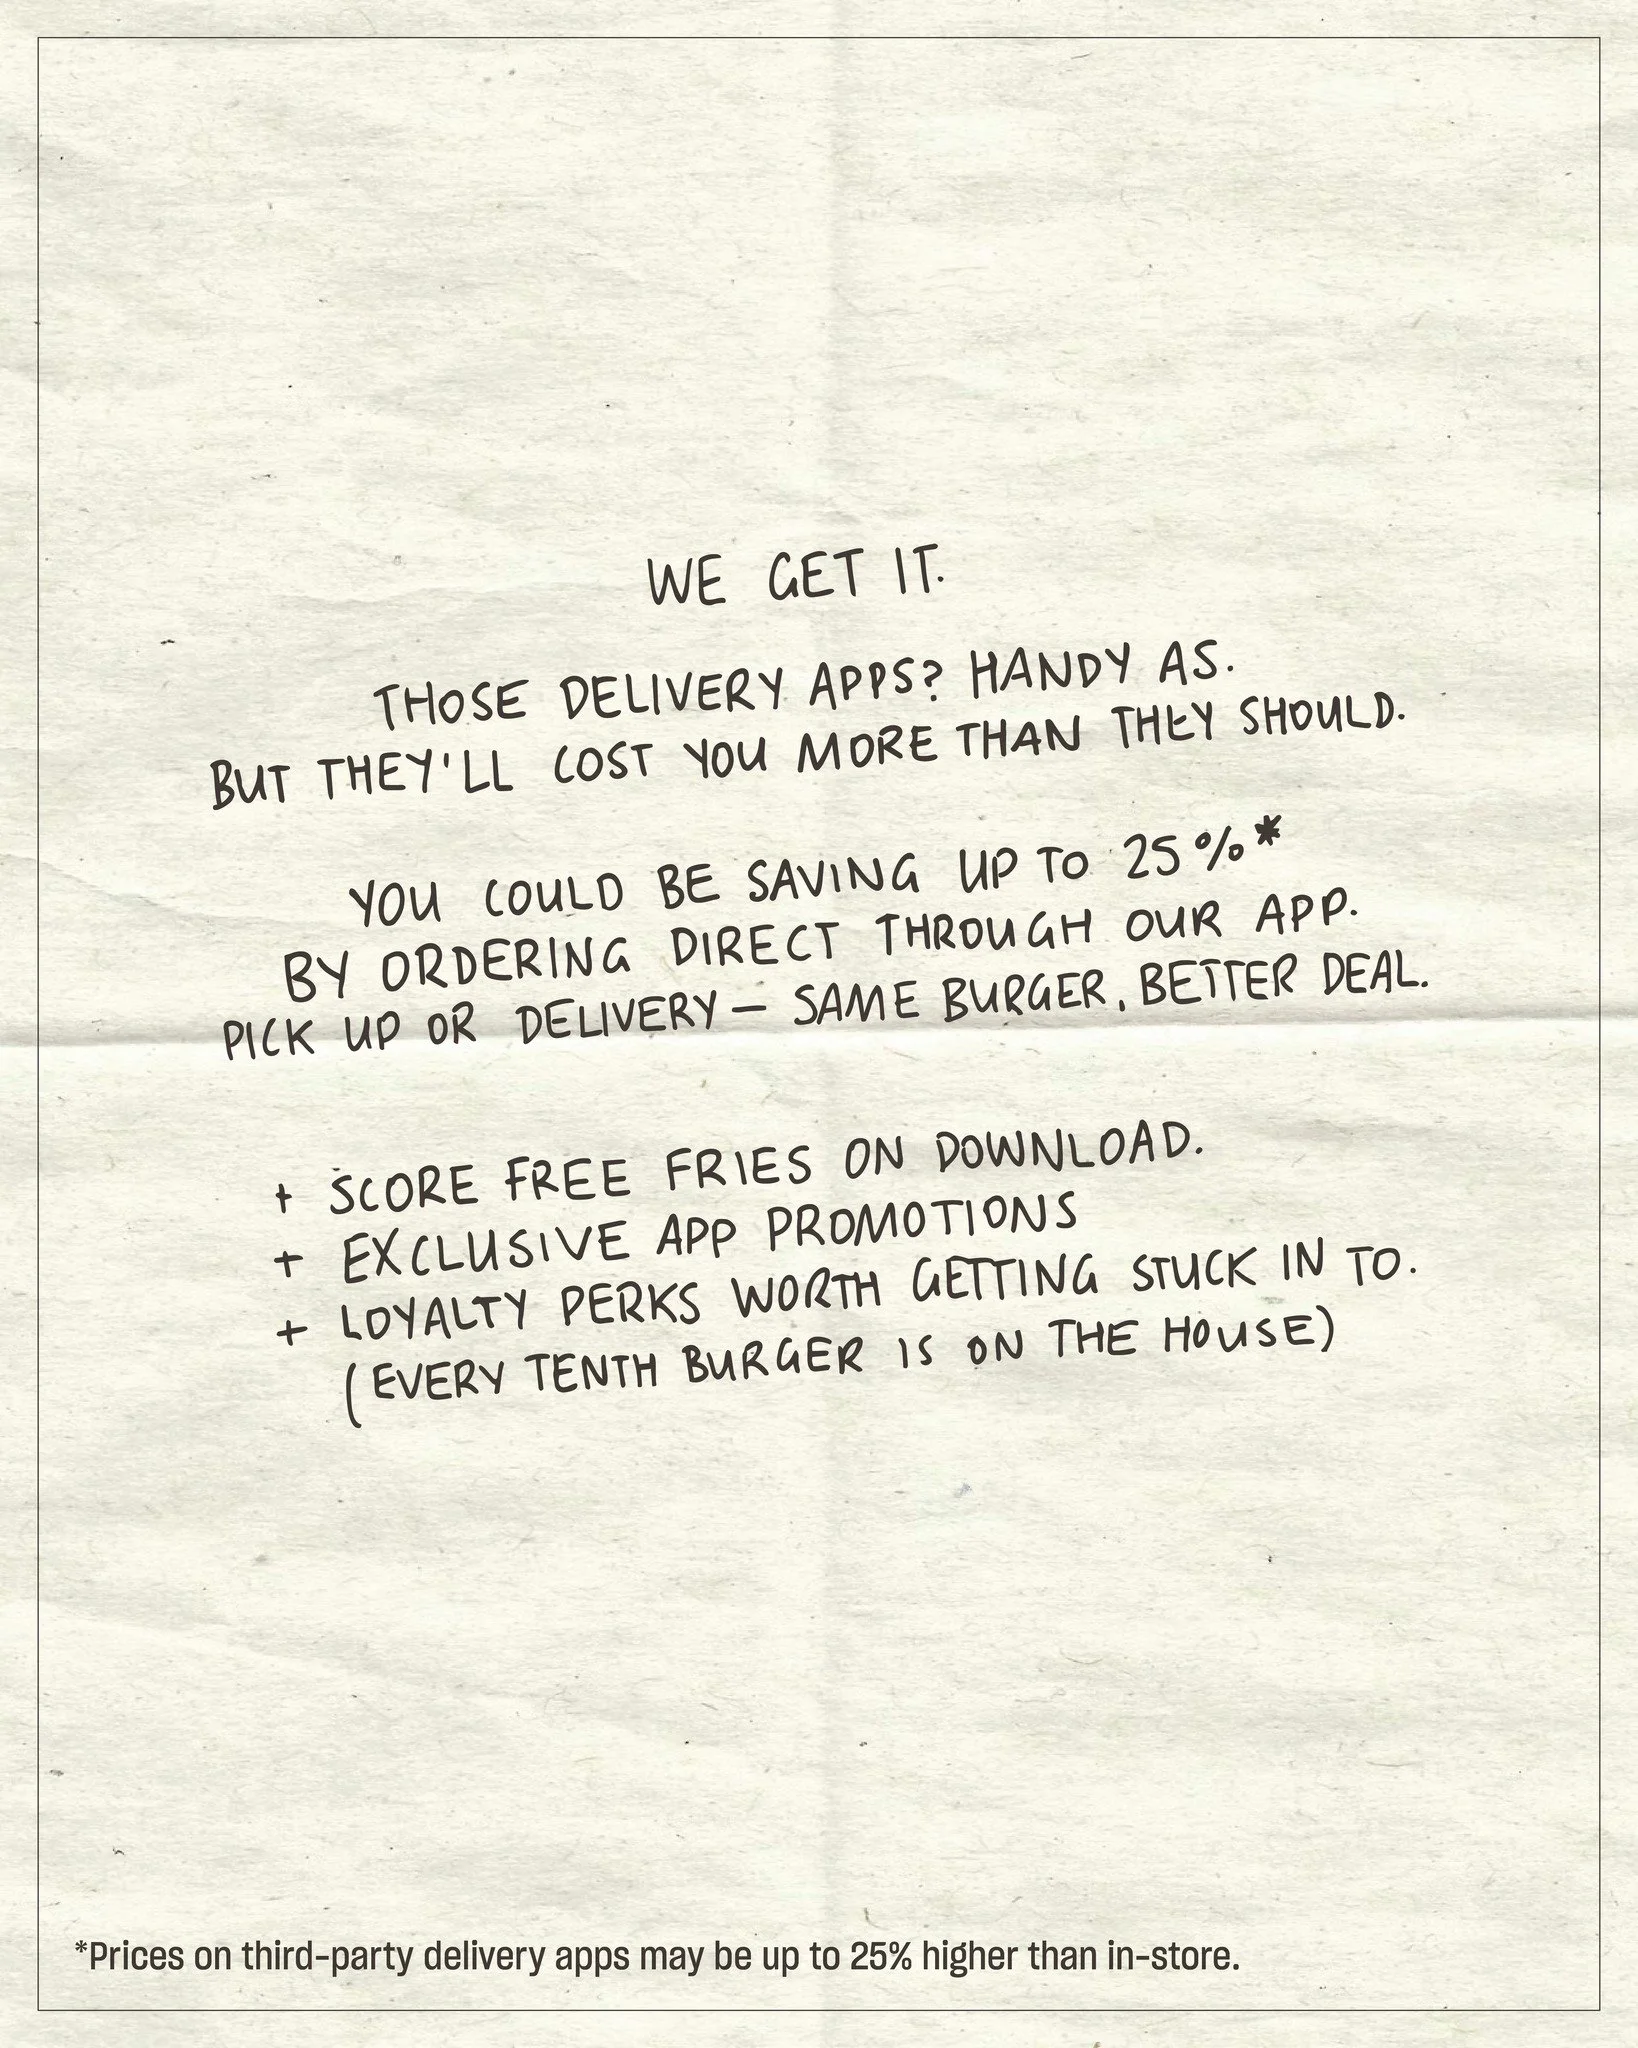 WE GET IT.
THOSE DELIVERY APPS? HANDY AS.
BUT THEY'LL COST YOU MORE THAN THEY SHOULD.
YOU COULD BE SAVING UP TO 25%*
BY ORDERING DIRECT THROUGH OUR APP.
PICK UP OR DELIVERY – SAME BURGER, BETTER DEAL.
+ SCORE FREE FRIES ON DOWNLOAD.
+ EXCLUSIVE APP PROMOTIONS
+ LOYALTY PERKS WORTH GETTING STUCK IN TO.
(EVERY TENTH BURGER IS ON THE HOUSE)
*Prices on third-party delivery apps may be up to 25% higher than in-store.